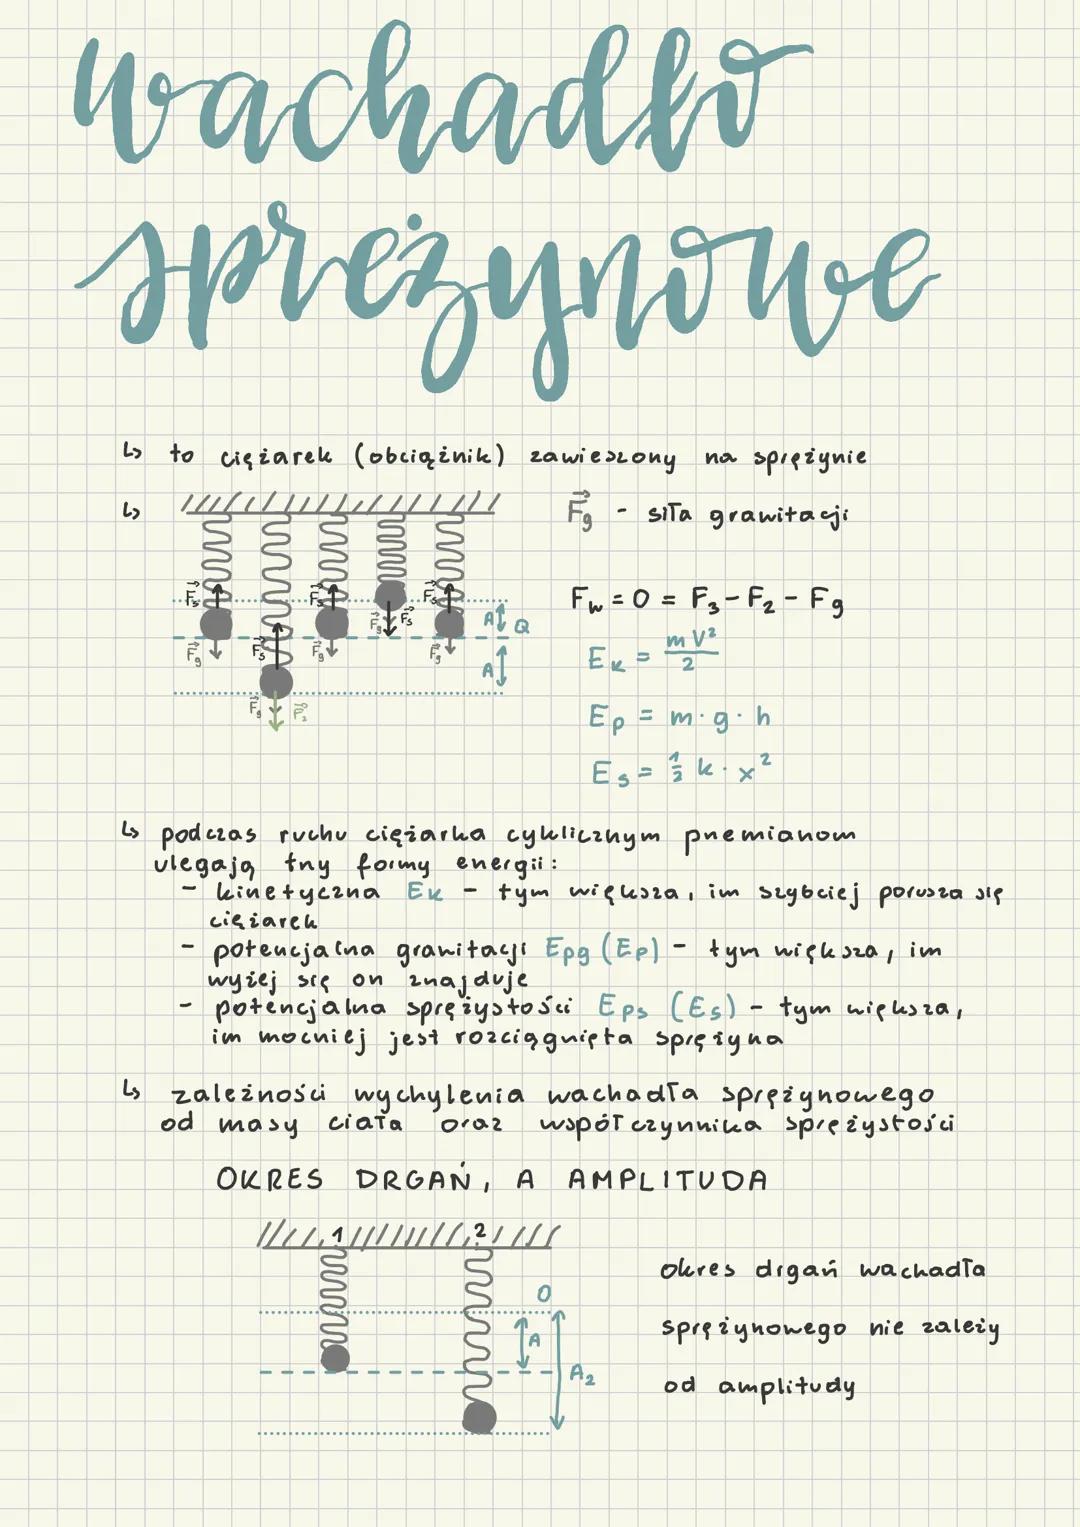 wachadło
sprężynowe
↳ to ciężarek (obciążnik) zawieszony na sprężynie
↳ F⃗g - siła grawitacji
F⃗s F⃗s F⃗s F⃗s F⃗s
F⃗g F⃗g F⃗g F⃗g F⃗g F⃗2
A Q
A
Fw = 0 = F3 - F2 - Fg
Ek = mV²/2
Ep = m · g · h
Es = ½ k · x²
↳ podczas ruchu ciężarka cyklicznym przemianom
ulegają trzy formy energii:
- kinetyczna Ek - tym większa, im szybciej porusza się
ciężarek
- potencjalna grawitacji Epg (Ep) - tym większa, im
wyżej się on znajduje
- potencjalna sprężystości Eps (Es) - tym większa,
im mocniej jest rozciągnięta sprężyna
↳ zależności wychylenia wachadła sprężynowego
od masy ciała oraz współczynnika sprężystości
OKRES DRGAŃ, A AMPLITUDA
1 2
0
A
A2
okres drgań wachadła
sprężynowego nie zależy
od amplitudy